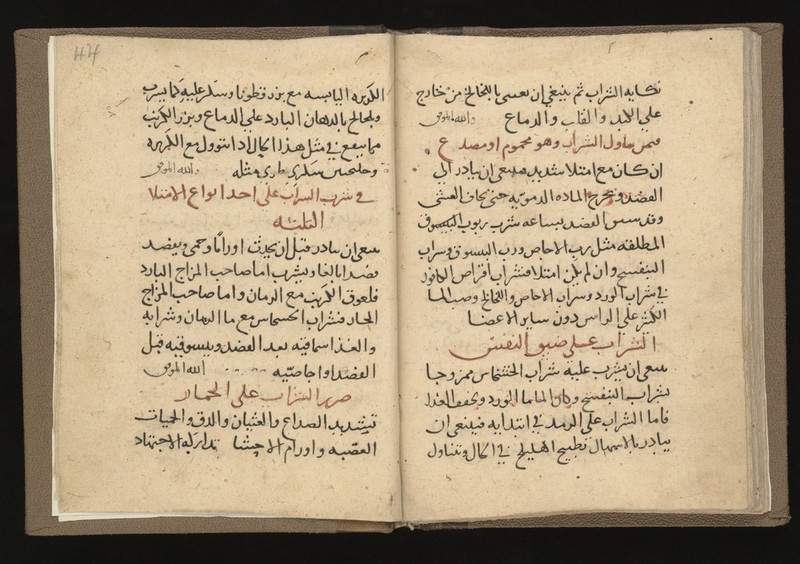 نكايه الشراب ثم ينبغي ان يعنى بالنخالخ من خارج
على الكبد والقلب والدماغ والله الموفق
فمن تناول الشراب وهو محموم او مصدع
ان كان مع امتلا شديد فينبغي ان يبادر الى
الفصد ويخرج الماده الدمويه حتى يخاف الغشى
وقد سبق الفصد بساعه شرب ربوب
المطلقه مثل رب الاجاص ورب وشراب
البنفسج وان لم يكن امتلا فشراب اقراص الكافور
في شراب الورد وشراب الاجاص واللخالخ وصب الما
الكثير على الراس دون ساير الاعضا
الشراب على ضيق النفس
ينبغي ان يشرب عليه شراب الخشخاش ممزوجا
بشراب البنفسج وكان الما ما الورد ويخفف الغذا
فاما الشراب على الرمد في ابتدايه فينبغي ان
يبادر بالاسهال بطبيخ الهليلج في اكال ويتناول
الكزبره اليابسه مع بزر قطونا وسكر عليه كما يشرب
ويعالج بالدهان البارد على الدماغ وبزر
مما ينفع في مثل هذا اكال اذا تنوول مع الكزبره
سكرى طرى مثله والله الموفق
في شرب الشراب على احد انواع الامتلا
الثلثه
ينبغي ان يبادر قبل ان يحدث اوراما وحمى ويفصد
فصدا بالغا ويشرب اما صاحب المزاج البارد
مع الرمان واما صاحب المزاج
الحار فشراب مع ما الرمان وشرابه
والغذا سماقيه بعد الفصد قبل
الفصد او اجاصيه والله الموفق
ضرر الشراب على الخمار
تشديد الصداع والغثيان والدق والحميات
واورام الاحشا تداركه الاجتهاد